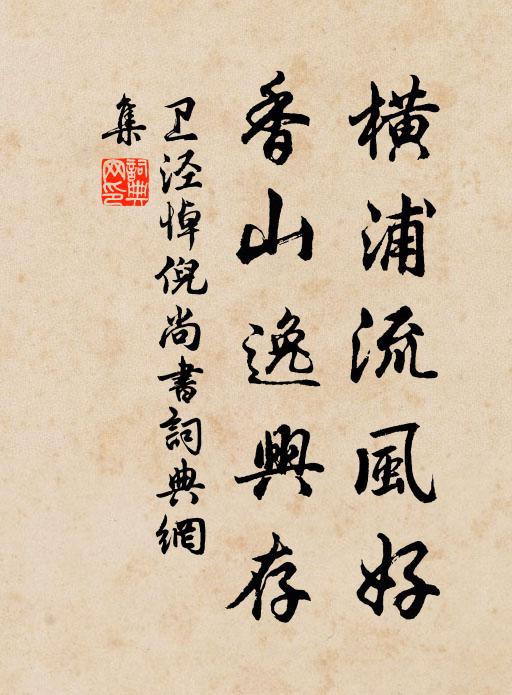 橫浦流風好
香山逸興存
卫泾悼倪尚書詞典網
集
詞典
网印